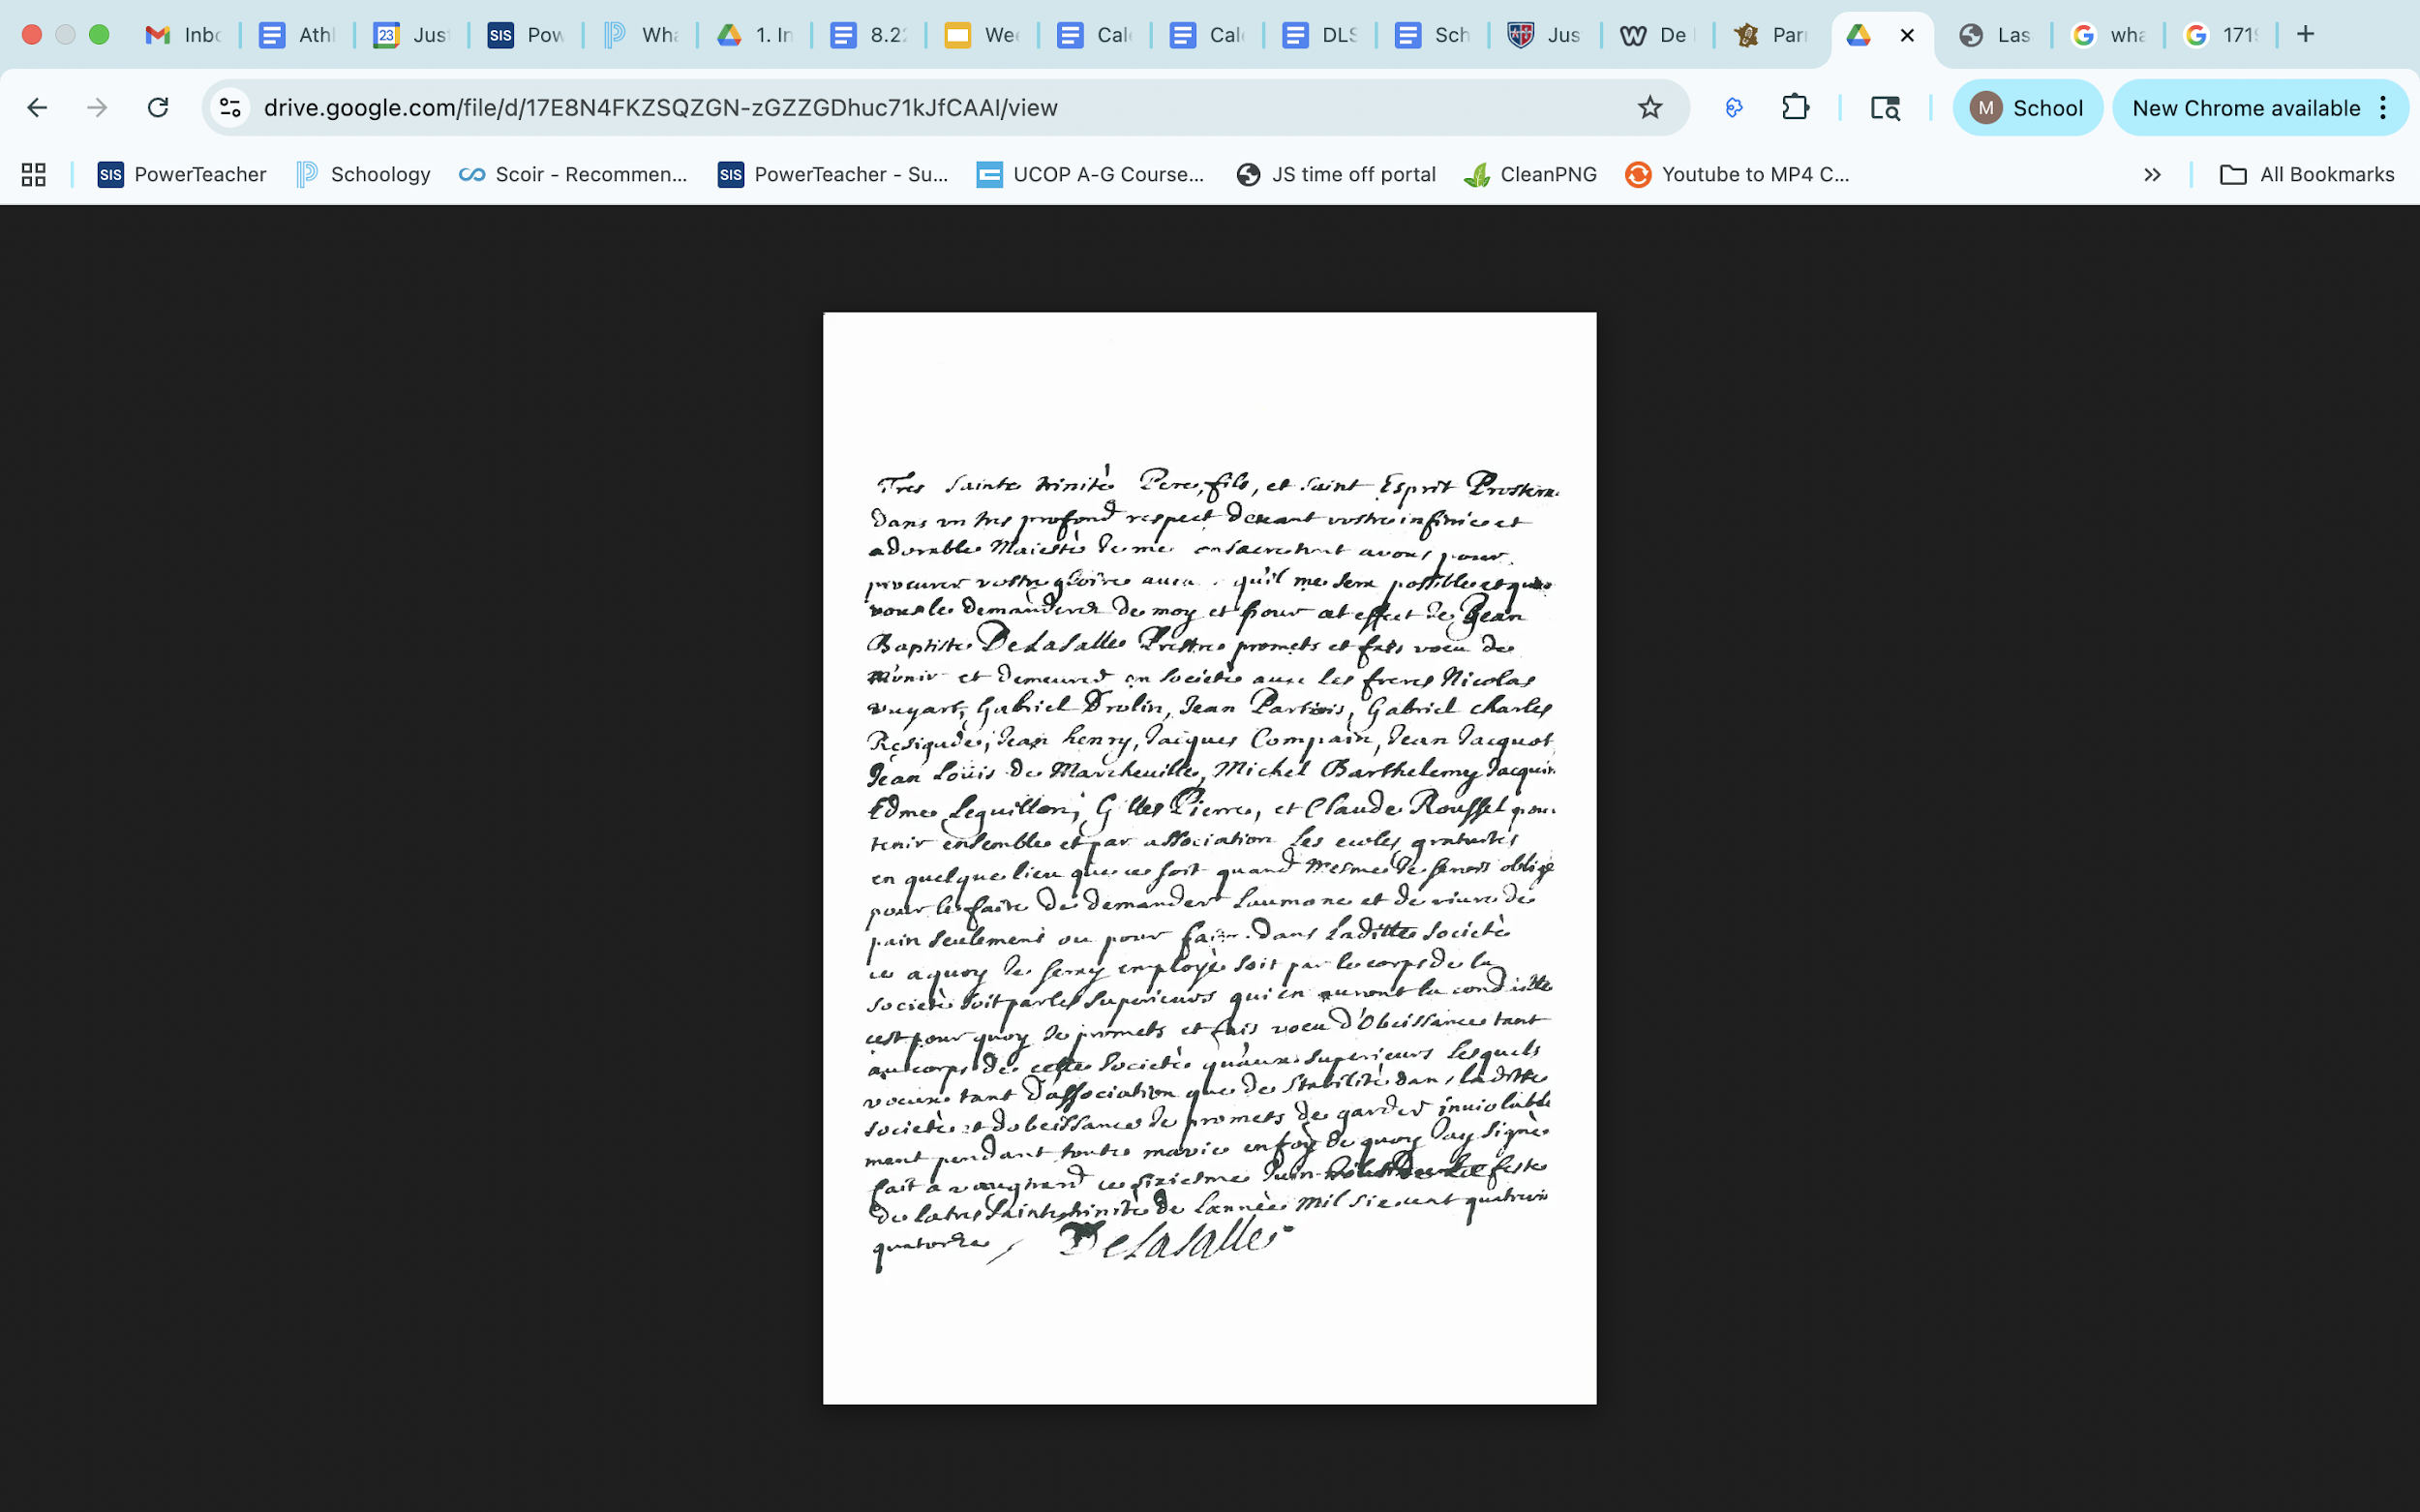 Inbc
Athl
Jus
Pow
Wha
1. In
8.22
Wee
Cale
Cale
DLS
Sch
Jus
De
Parr
Las
wha
1719
drive.google.com/file/d/17E8N4FKZSQZGN-zGZZGDhuc71kJfCAAI/view
School
New Chrome available
PowerTeacher
Schoology
Scoir - Recommen...
PowerTeacher - Su...
UCOP A-G Course...
JS time off portal
CleanPNG
Youtube to MP4 C...
All Bookmarks
Tres Sainte trinité Pere, fils, et Saint Esprit Prostern
dans un tres profond respect devant vostre infinie et
adorable Maiesté Je me consacre tout a vous pour
procurer vostre gloire qu'il me sera possible et que
vous le demanderez de moy et pour cet effet Je Jean
Baptiste De La Salle Prestre promets et fais voeu de
m'unir et demeurer en Societé avec Les freres Nicolas
vuyart, Gabriel Drolin, Jean Partois, Gabriel charles
Resigade, Jean henry, Jacques Compain, Jean Jacquot
Jean Louis de Marcheville, Michel Barthelemy Jacquin
Edme Leguillon, Gilles Pierre, et Claude Roussel pour
tenir ensemble et par association Les ecoles gratuites
en quelque lieu que ce soit quand mesme Je serois obligé
pour le faire de demander Laumone et de vivre de
pain seulement ou pour faire dans Laditte Societé
ce a quoy Je seray employé soit par le corps de la
Societé soit par les Superieurs qui en auront la conduitte
cest pour quoy Je promets et fais voeu d'Obeissance tant
au corps de cette Societé qu'aux Superieurs Lesquels
voeux tant d'association que de Stabilité dans laditte
Societé et dobeissance Je promets de garder inviolable
ment pendant toute ma vie en foy de quoy Jay Signé
fait a vaugirard ce sixiesme Juin feste
de La tres Sainte trinité de Lannée mil six cent quatrevin
quatorze DeLaSalle